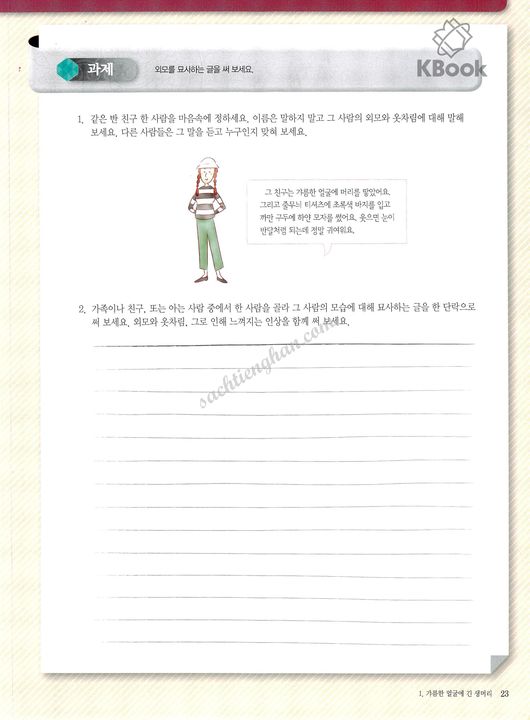 KBook
과제
외모를 묘사하는 글을 써 보세요.
1. 같은 반 친구 한 사람을 마음속에 정하세요. 이름은 말하지 말고 그 사람의 외모와 옷차림에 대해 말해
보세요. 다른 사람들은 그 말을 듣고 누구인지 맞혀 보세요.
그 친구는 갸름한 얼굴에 머리를 땋았어요.
그리고 줄무늬 티셔츠에 초록색 바지를 입고
까만 구두에 하얀 모자를 썼어요. 웃으면 눈이
반달처럼 되는데 정말 귀여워요.
2. 가족이나 친구, 또는 아는 사람 중에서 한 사람을 골라 그 사람의 모습에 대해 묘사하는 글을 한 단락으로
써 보세요. 외모와 옷차림, 그로 인해 느껴지는 인상을 함께 써 보세요.
sachtienghan.com
1. 갸름한 얼굴에 긴 생머리 23